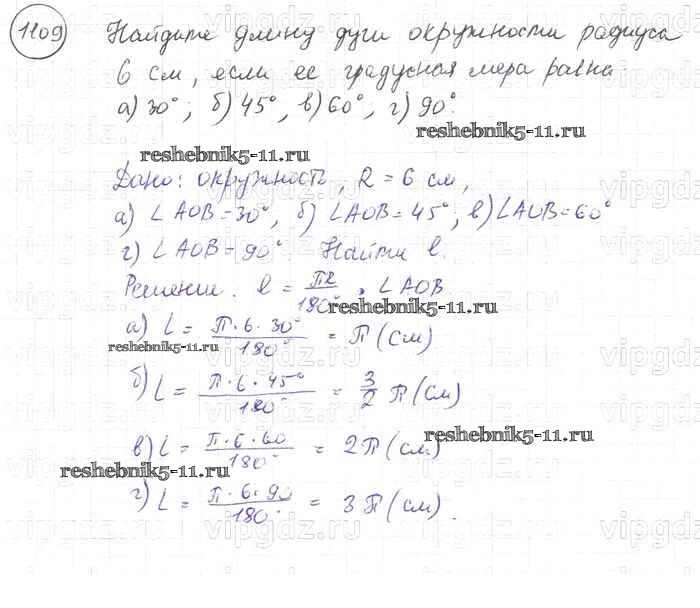 1109 Найдите длину дуги окружности радиуса
6 см, если ее градусная мера равна
а) 30°; б) 45°, в) 60°, г) 90°.
reshebnik5-11.ru
reshebnik5-11.ru
Дано: окружность, R = 6 см,
а) ∠AOB = 30°, б) ∠AOB = 45°, в) ∠AOB = 60°
г) ∠AOB = 90°. Найти l.
Решение. l = πR/180° · ∠AOB.
reshebnik5-11.ru
а) L = π·6·30°/180° = π (см)
reshebnik5-11.ru
б) L = π·6·45°/180° = 3/2 π (см)
reshebnik5-11.ru
в) L = π·6·60/180° = 2π (см)
reshebnik5-11.ru
г) L = π·6·90/180° = 3π (см).
vipgdz.ru